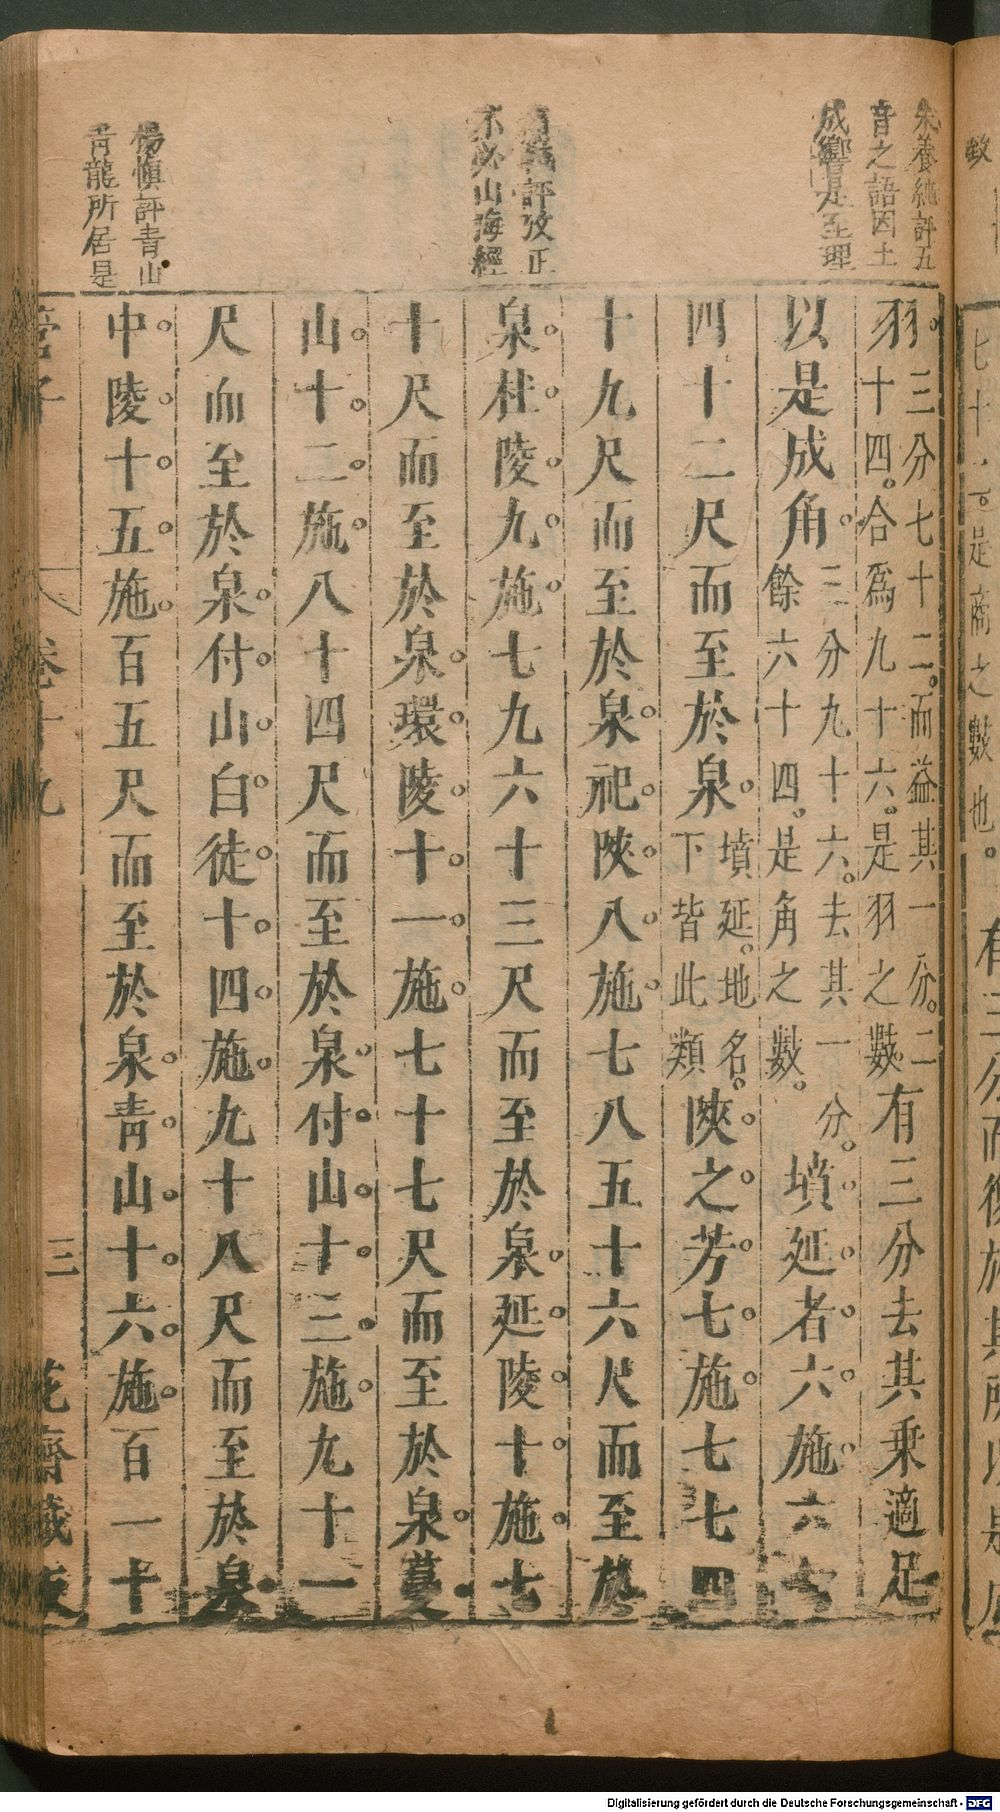 朱養純評五
音之語因土
成響是至理
評攷正
亦必山海經
楊慎評青山
青龍所居是
羽。三分七十二。而益其一分。二
十四。合爲九十六。是羽之數。有三分去其乘適足
以是成角。三分九十六。去其一分。
餘六十四。是角之數。墳延者六施六七
四十二尺而至於泉。墳延。地名。
下皆此類陝之芳七施七七四
十九尺而至於泉祀陝八施七八五十六尺而至於
泉杜陵九施七九六十三尺而至於泉延陵十施七
十尺而至於泉環陵十一施七十七尺而至於泉蔓
山十二施八十四尺而至於泉付山十三施九十一
尺而至於泉付山白徒十四施九十八尺而至於泉
中陵十五施百五尺而至於泉青山十六施百一十
管子 卷十九 三 花齋藏板
七十 是商之數也。有三分而復於其所以是成
Digitalisierung gefördert durch die Deutsche Forschungsgemeinschaft - DFG